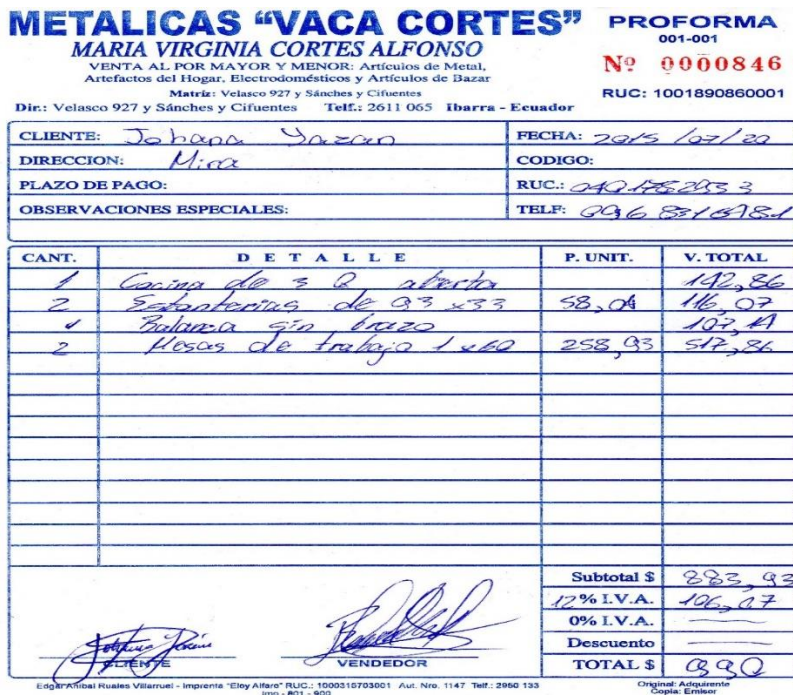 METALICAS “VACA CORTES”
MARIA VIRGINIA CORTES ALFONSO
VENTA AL POR MAYOR Y MENOR: Artículos de Metal,
Artefactos del Hogar, Electrodomésticos y Artículos de Bazar
Matriz: Velasco 927 y Sánches y Cifuentes
Dir.: Velasco 927 y Sánches y Cifuentes Telf.: 2611 065 Ibarra - Ecuador
PROFORMA
001-001
Nº 0000846
RUC: 1001890860001
CLIENTE: Johana FECHA: 2015/07/20
DIRECCION: Mira CODIGO:
PLAZO DE PAGO: RUC.:
OBSERVACIONES ESPECIALES: TELF:
CANT. DETALLE P. UNIT. V. TOTAL
1 Cocina de 3 Q abierta 142,86
2 Estanterias de 93 x33 58,04 116,07
1 Balanza sin brazo 107,14
2 Mesas de trabajo 1 x60 258,93 517,86
Subtotal $ 883,93
12% I.V.A. 106,07
0% I.V.A.
Descuento
TOTAL $ 990
CLIENTE VENDEDOR
Edgar Anibal Ruales Villarruel - Imprenta "Eloy Alfaro" RUC.: 1000315703001 Aut. Nro. 1147 Telf.: 2950 133
Imp - 801 - 900
Original: Adquirente
Copia: Emisor